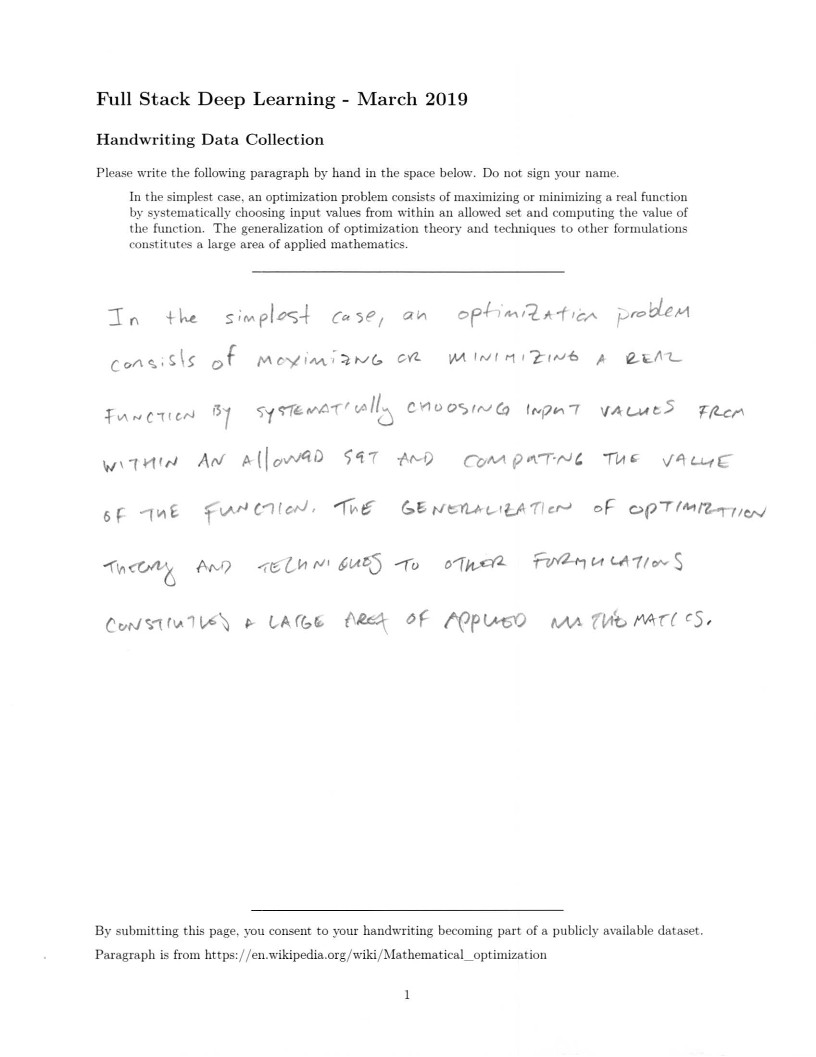 Full Stack Deep Learning - March 2019
Handwriting Data Collection
Please write the following paragraph by hand in the space below. Do not sign your name.
In the simplest case, an optimization problem consists of maximizing or minimizing a real function
by systematically choosing input values from within an allowed set and computing the value of
the function. The generalization of optimization theory and techniques to other formulations
constitutes a large area of applied mathematics.
In the simplest case, an optimization problem
consists of maximizing OR MINIMIZING A REAL
FUNCTION BY SYSTEMATICally CHOOSING INPUT VALUES FROM
WITHIN AN AllOWED SET AND COMPUTING THE VALUE
OF THE FUNCTION. THE GENERALIZATION OF OPTIMIZATION
THEORY AND TECHNIQUES TO OTHER FORMULATIONS
CONSTITUTES A LARGE AREA OF APPLIED MATHEMATICS.
By submitting this page, you consent to your handwriting becoming part of a publicly available dataset.
Paragraph is from https://en.wikipedia.org/wiki/Mathematical_optimization
1